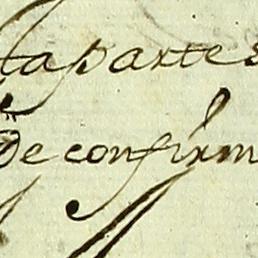 ta partes
De confirm